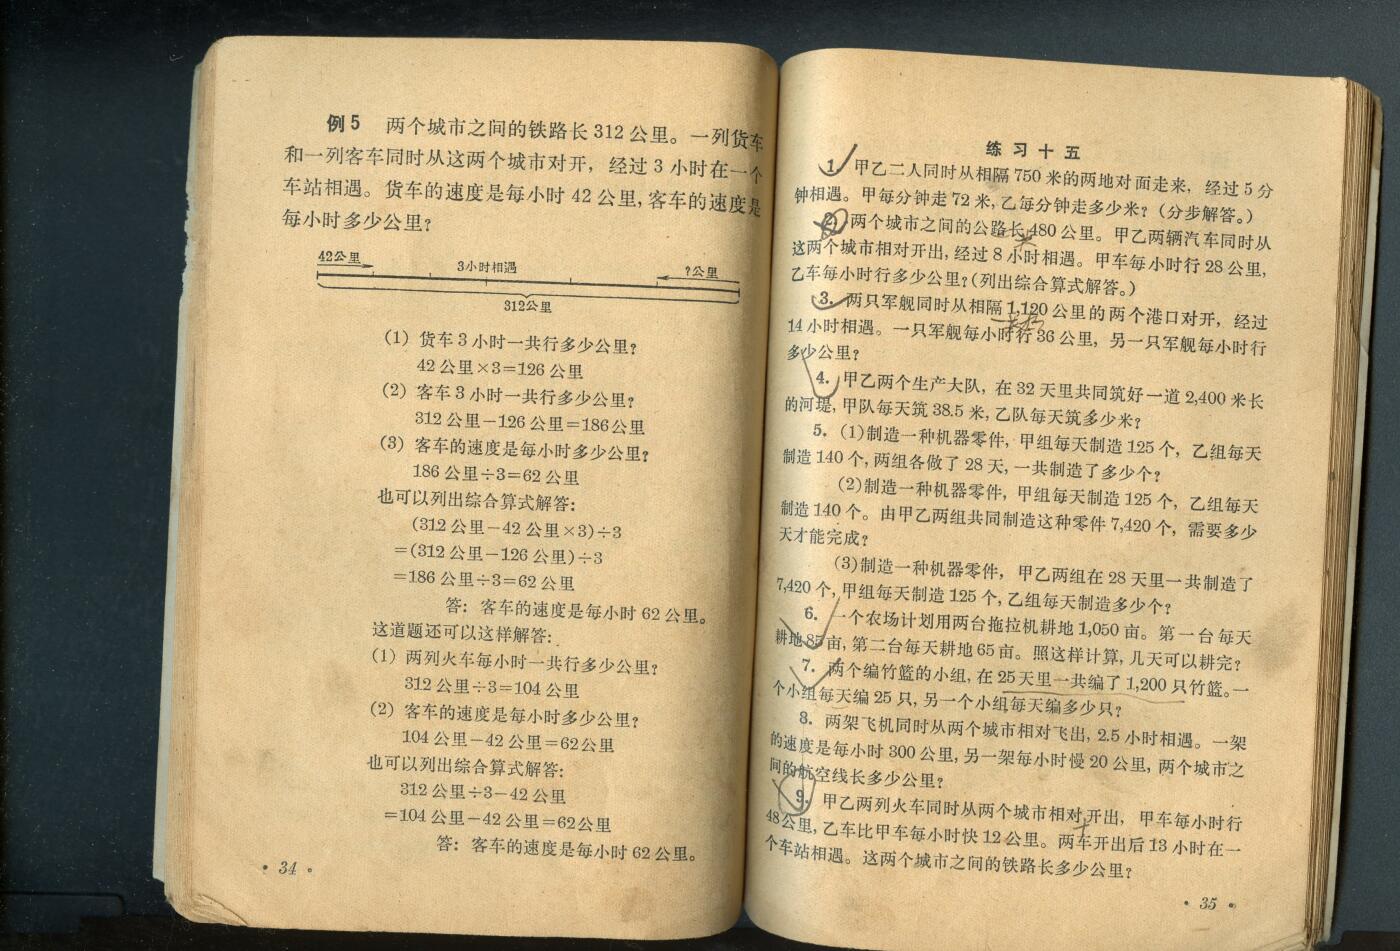 例5　两个城市之间的铁路长 312 公里。一列货车
和一列客车同时从这两个城市对开，经过 3 小时在一个
车站相遇。货车的速度是每小时 42 公里，客车的速度是
每小时多少公里？
42公里
3小时相遇
?公里
312公里
(1) 货车 3 小时一共行多少公里？
42 公里×3=126 公里
(2) 客车 3 小时一共行多少公里？
312 公里－126 公里=186公里
(3) 客车的速度是每小时多少公里？
186 公里÷3=62 公里
也可以列出综合算式解答：
(312 公里－42 公里×3)÷3
=(312 公里－126 公里)÷3
=186 公里÷3=62 公里
答：客车的速度是每小时 62 公里。
这道题还可以这样解答：
(1) 两列火车每小时一共行多少公里？
312 公里÷3=104 公里
(2) 客车的速度是每小时多少公里？
104 公里－42 公里=62公里
也可以列出综合算式解答：
312 公里÷3－42 公里
=104 公里－42 公里=62公里
答：客车的速度是每小时 62 公里。
· 34 ·
练习十五
1. 甲乙二人同时从相隔 750 米的两地对面走来，经过 5 分
钟相遇。甲每分钟走 72 米，乙每分钟走多少米？(分步解答。)
2. 两个城市之间的公路长 480 公里。甲乙两辆汽车同时从
这两个城市相对开出，经过 8 小时相遇。甲车每小时行 28 公里，
乙车每小时行多少公里？(列出综合算式解答。)
3. 两只军舰同时从相隔 1,120 公里的两个港口对开，经过
14 小时相遇。一只军舰每小时行 36 公里，另一只军舰每小时行
多少公里？
4. 甲乙两个生产大队，在 32 天里共同筑好一道 2,400 米长
的河堤，甲队每天筑 38.5 米，乙队每天筑多少米？
5. (1)制造一种机器零件，甲组每天制造 125 个，乙组每天
制造 140 个，两组各做了 28 天，一共制造了多少个？
(2)制造一种机器零件，甲组每天制造 125 个，乙组每天
制造 140 个。由甲乙两组共同制造这种零件 7,420 个，需要多少
天才能完成？
(3)制造一种机器零件，甲乙两组在 28 天里一共制造了
7,420 个，甲组每天制造 125 个，乙组每天制造多少个？
6. 一个农场计划用两台拖拉机耕地 1,050 亩。第一台每天
耕地 85 亩，第二台每天耕地 65 亩。照这样计算，几天可以耕完？
7. 两个编竹篮的小组，在 25 天里一共编了 1,200 只竹篮。一
个小组每天编 25 只，另一个小组每天编多少只？
8. 两架飞机同时从两个城市相对飞出，2.5 小时相遇。一架
的速度是每小时 300 公里，另一架每小时慢 20 公里，两个城市之
间的航空线长多少公里？
9. 甲乙两列火车同时从两个城市相对开出，甲车每小时行
48 公里，乙车比甲车每小时快 12 公里。两车开出后 13 小时在一
个车站相遇。这两个城市之间的铁路长多少公里？
· 35 ·